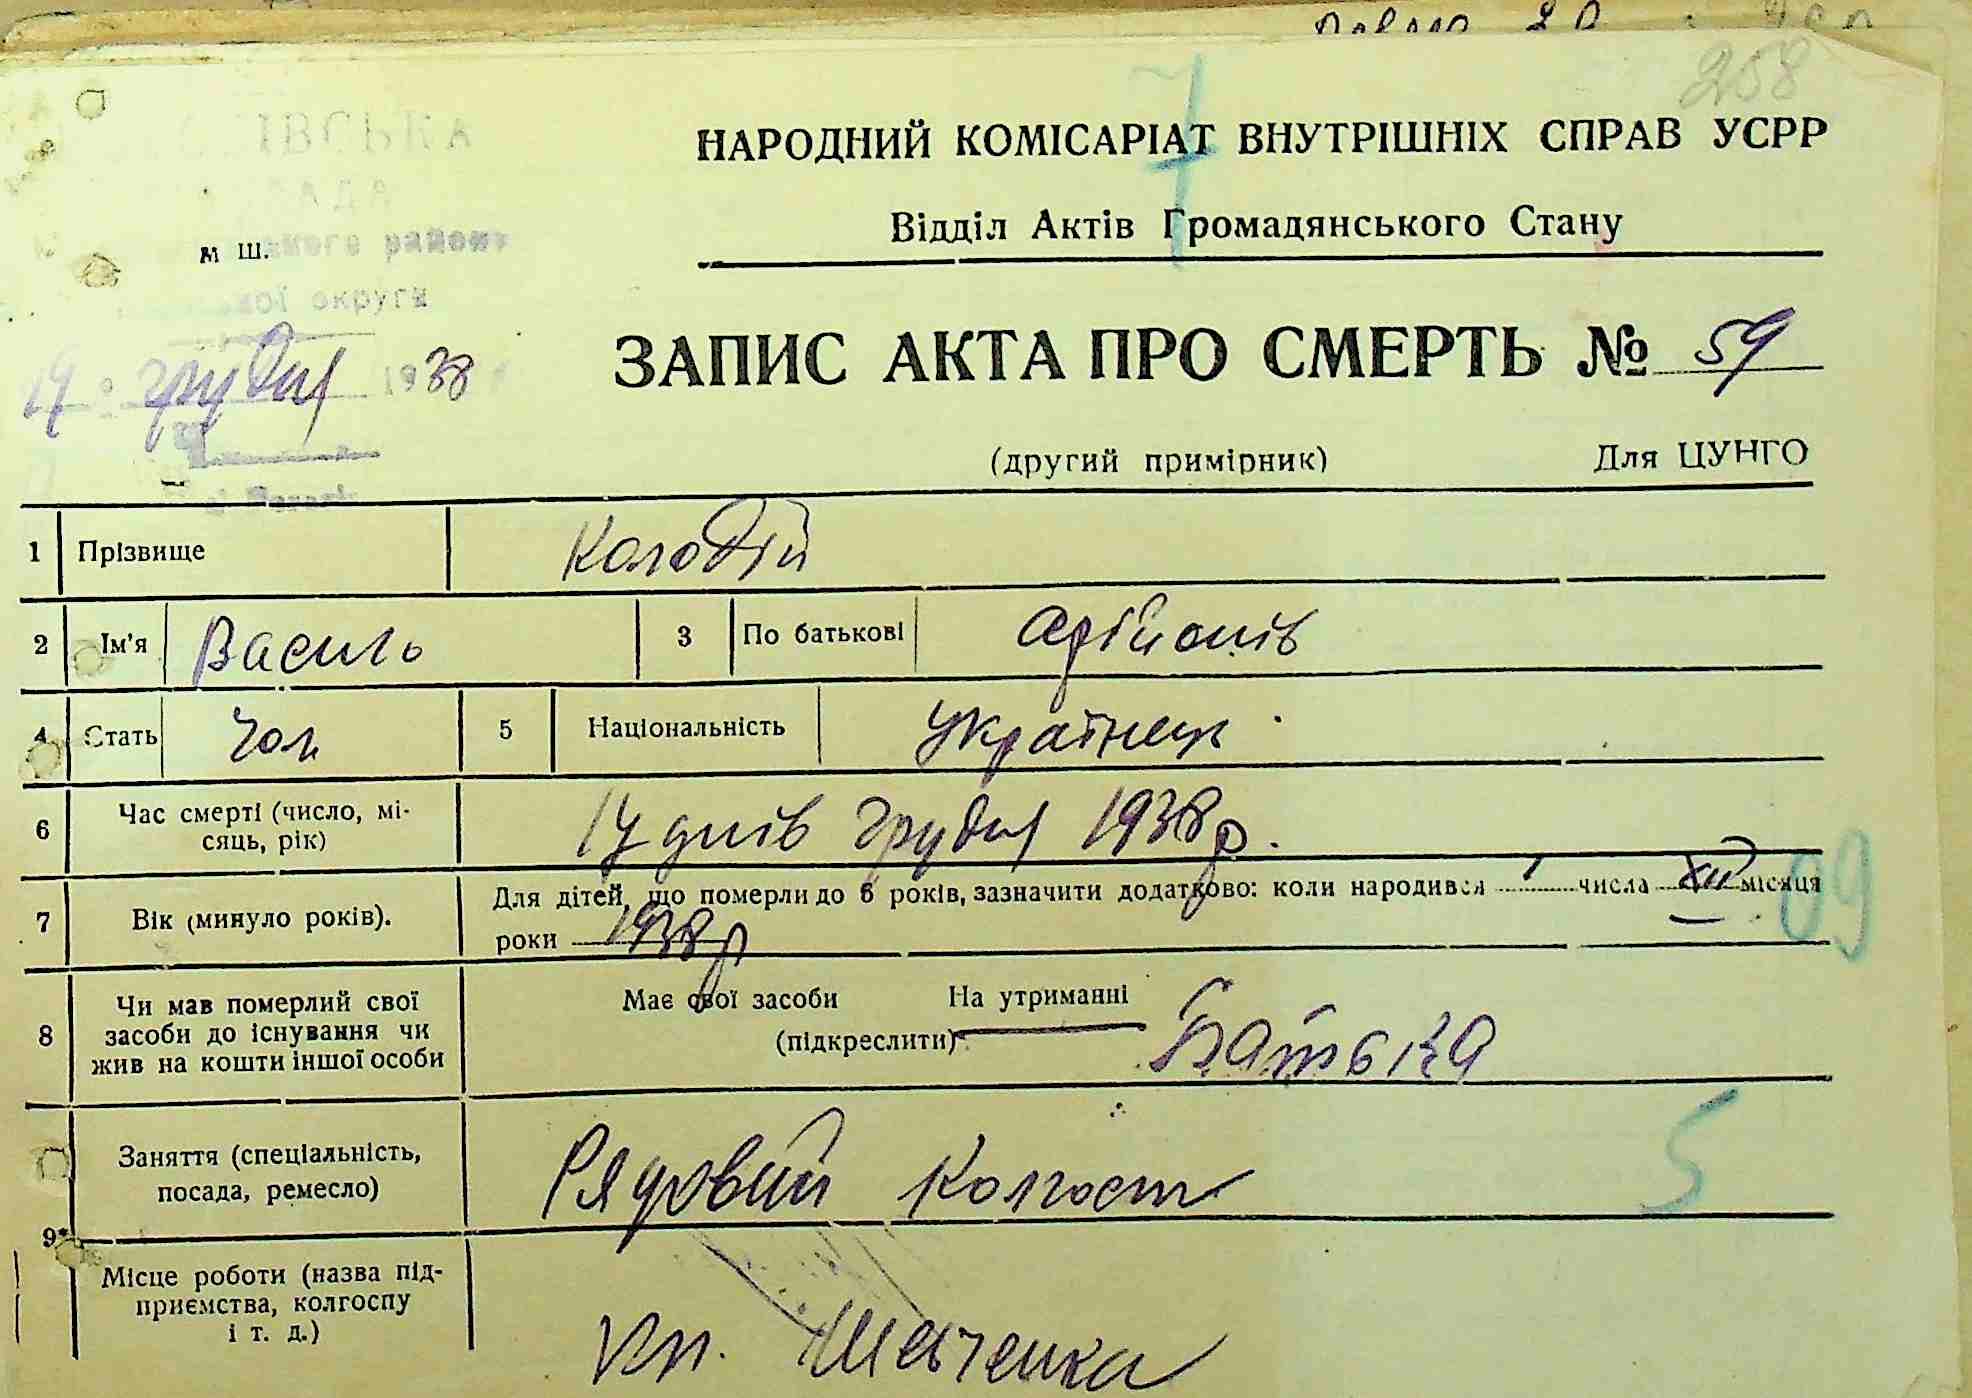 258
НАРОДНИЙ КОМІСАРІАТ ВНУТРІШНІХ СПРАВ УСРР
Відділ Актів Громадянського Стану
ІВСЬКА
РАДА
району
м ш.
округи
ЗАПИС АКТА ПРО СМЕРТЬ № 59
грудня 1938
(другий примірник) Для ЦУНГО
1 Прізвище Колодій
2 Ім'я Василь 3 По батькові
4 Стать Чол 5 Національність Українець
6 Час смерті (число, мі-
сяць, рік) днів грудня 1938 р.
7 Вік (минуло років). Для дітей, що померли до 6 років, зазначити додатково: коли народився 1 числа XII місяця
роки 1938 р
09
8 Чи мав померлий свої
засоби до існування чи
жив на кошти іншої особи
Має свої засоби На утриманні Батька
(підкреслити)
5
9* Заняття (спеціальність,
посада, ремесло) Рядовий Колгосп
Місце роботи (назва під-
приємства, колгоспу
і т. д.) Шевченка